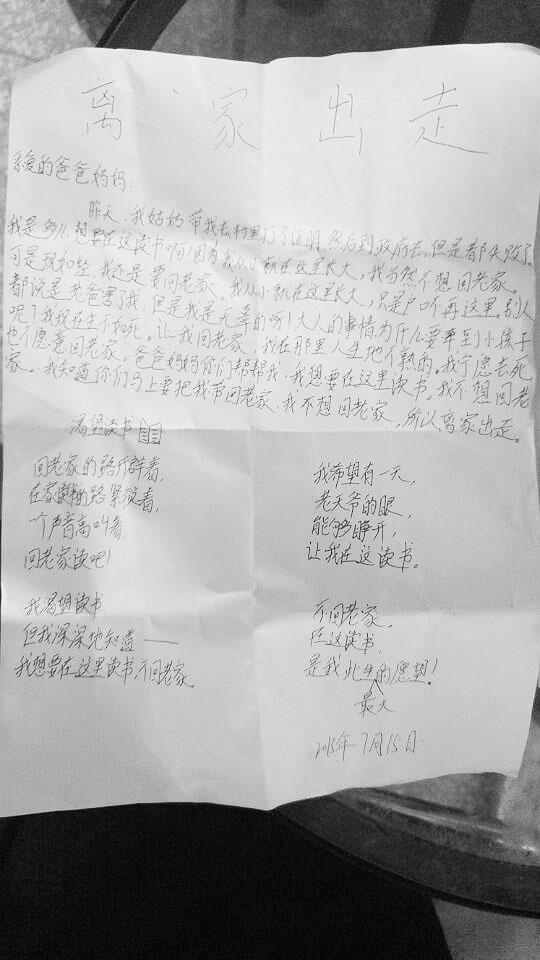 离家出走
亲爱的爸爸妈妈：
昨天，我姑妈带我去村里打了证明，然后到政府去，但是都失败了
我是多么想要在这读书啊！因为我从小就在这里长大，我当然不想回老家。
可是现如今，我还是要回老家。我从小就在这里长大，只是户口不再这里。别人
都说是老爸害了我，但是我是无辜的呀！大人的事情为什么要牵到小孩子
呢？我现在生不如死。让我回老家，我在那里人生地不熟的。我宁愿去死
也不愿意回老家。爸爸妈妈你们帮帮我，我想要在这里读书。我不想回老
家。我知道你们马上要把我带回老家，我不想回老家，所以离家出走。
渴望读书
回老家的路开辟着，
在家的路紧随着，
一个声音高叫着，
回老家读吧！
我渴望读书
但我深深地知道——
我想要在这里读书，不回老家。
我希望有一天，
老天爷的眼，
能够睁开，
让我在这读书。
不回老家，
在这读书，
是我此生的愿望！
最大
2015年7月15日